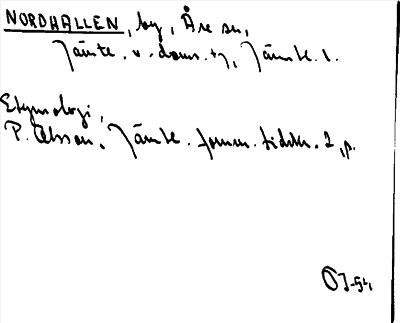 NORDHALLEN, by, Åre sn,
Jämtl. v. doms. t7, Jämtl. l.
Etymologi,
P. Olsson, Jämtl. fornm. tidskr. 2, p.
OJ-54